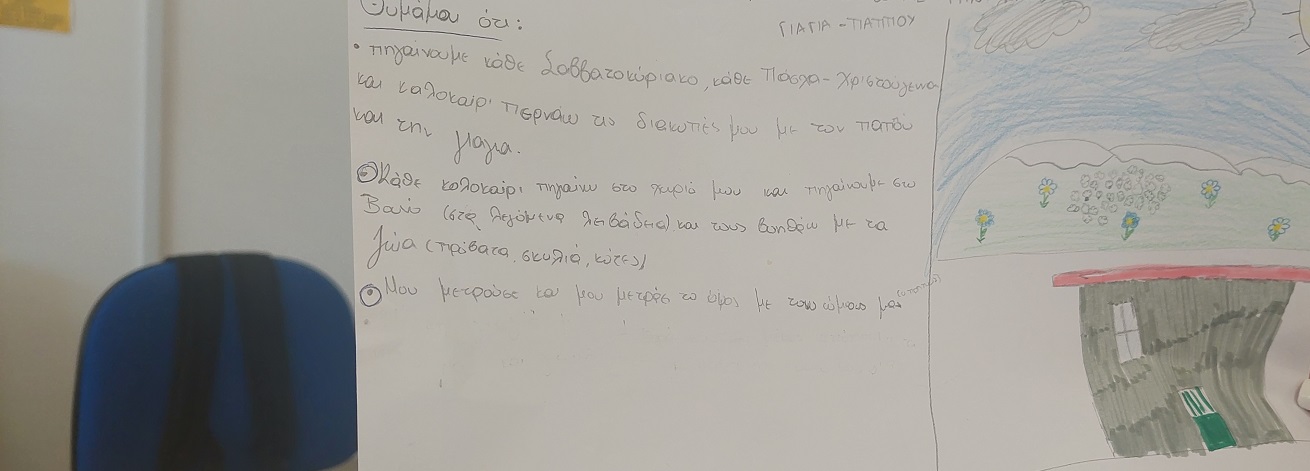 Θυμάμαι ότι:
ΓΙΑΓΙΑ - ΠΑΠΠΟΥ
• πηγαίνουμε κάθε Σαββατοκύριακο, κάθε Πάσχα - Χριστούγεννα
και καλοκαίρι περνάω τις διακοπές μου με τον παπού
και την γιαγια.
Κάθε καλοκαίρι πηγαίνω στο χωριό μου και πηγαίνουμε στο
Βουνό (στα λεγόμενα λειβάδεια) και τους βοηθάω με τα
ζώα (πρόβατα, σκυλιά, κότες)
Μου μετρούσε και μου μετράει το ύψος με τους ώμους μας